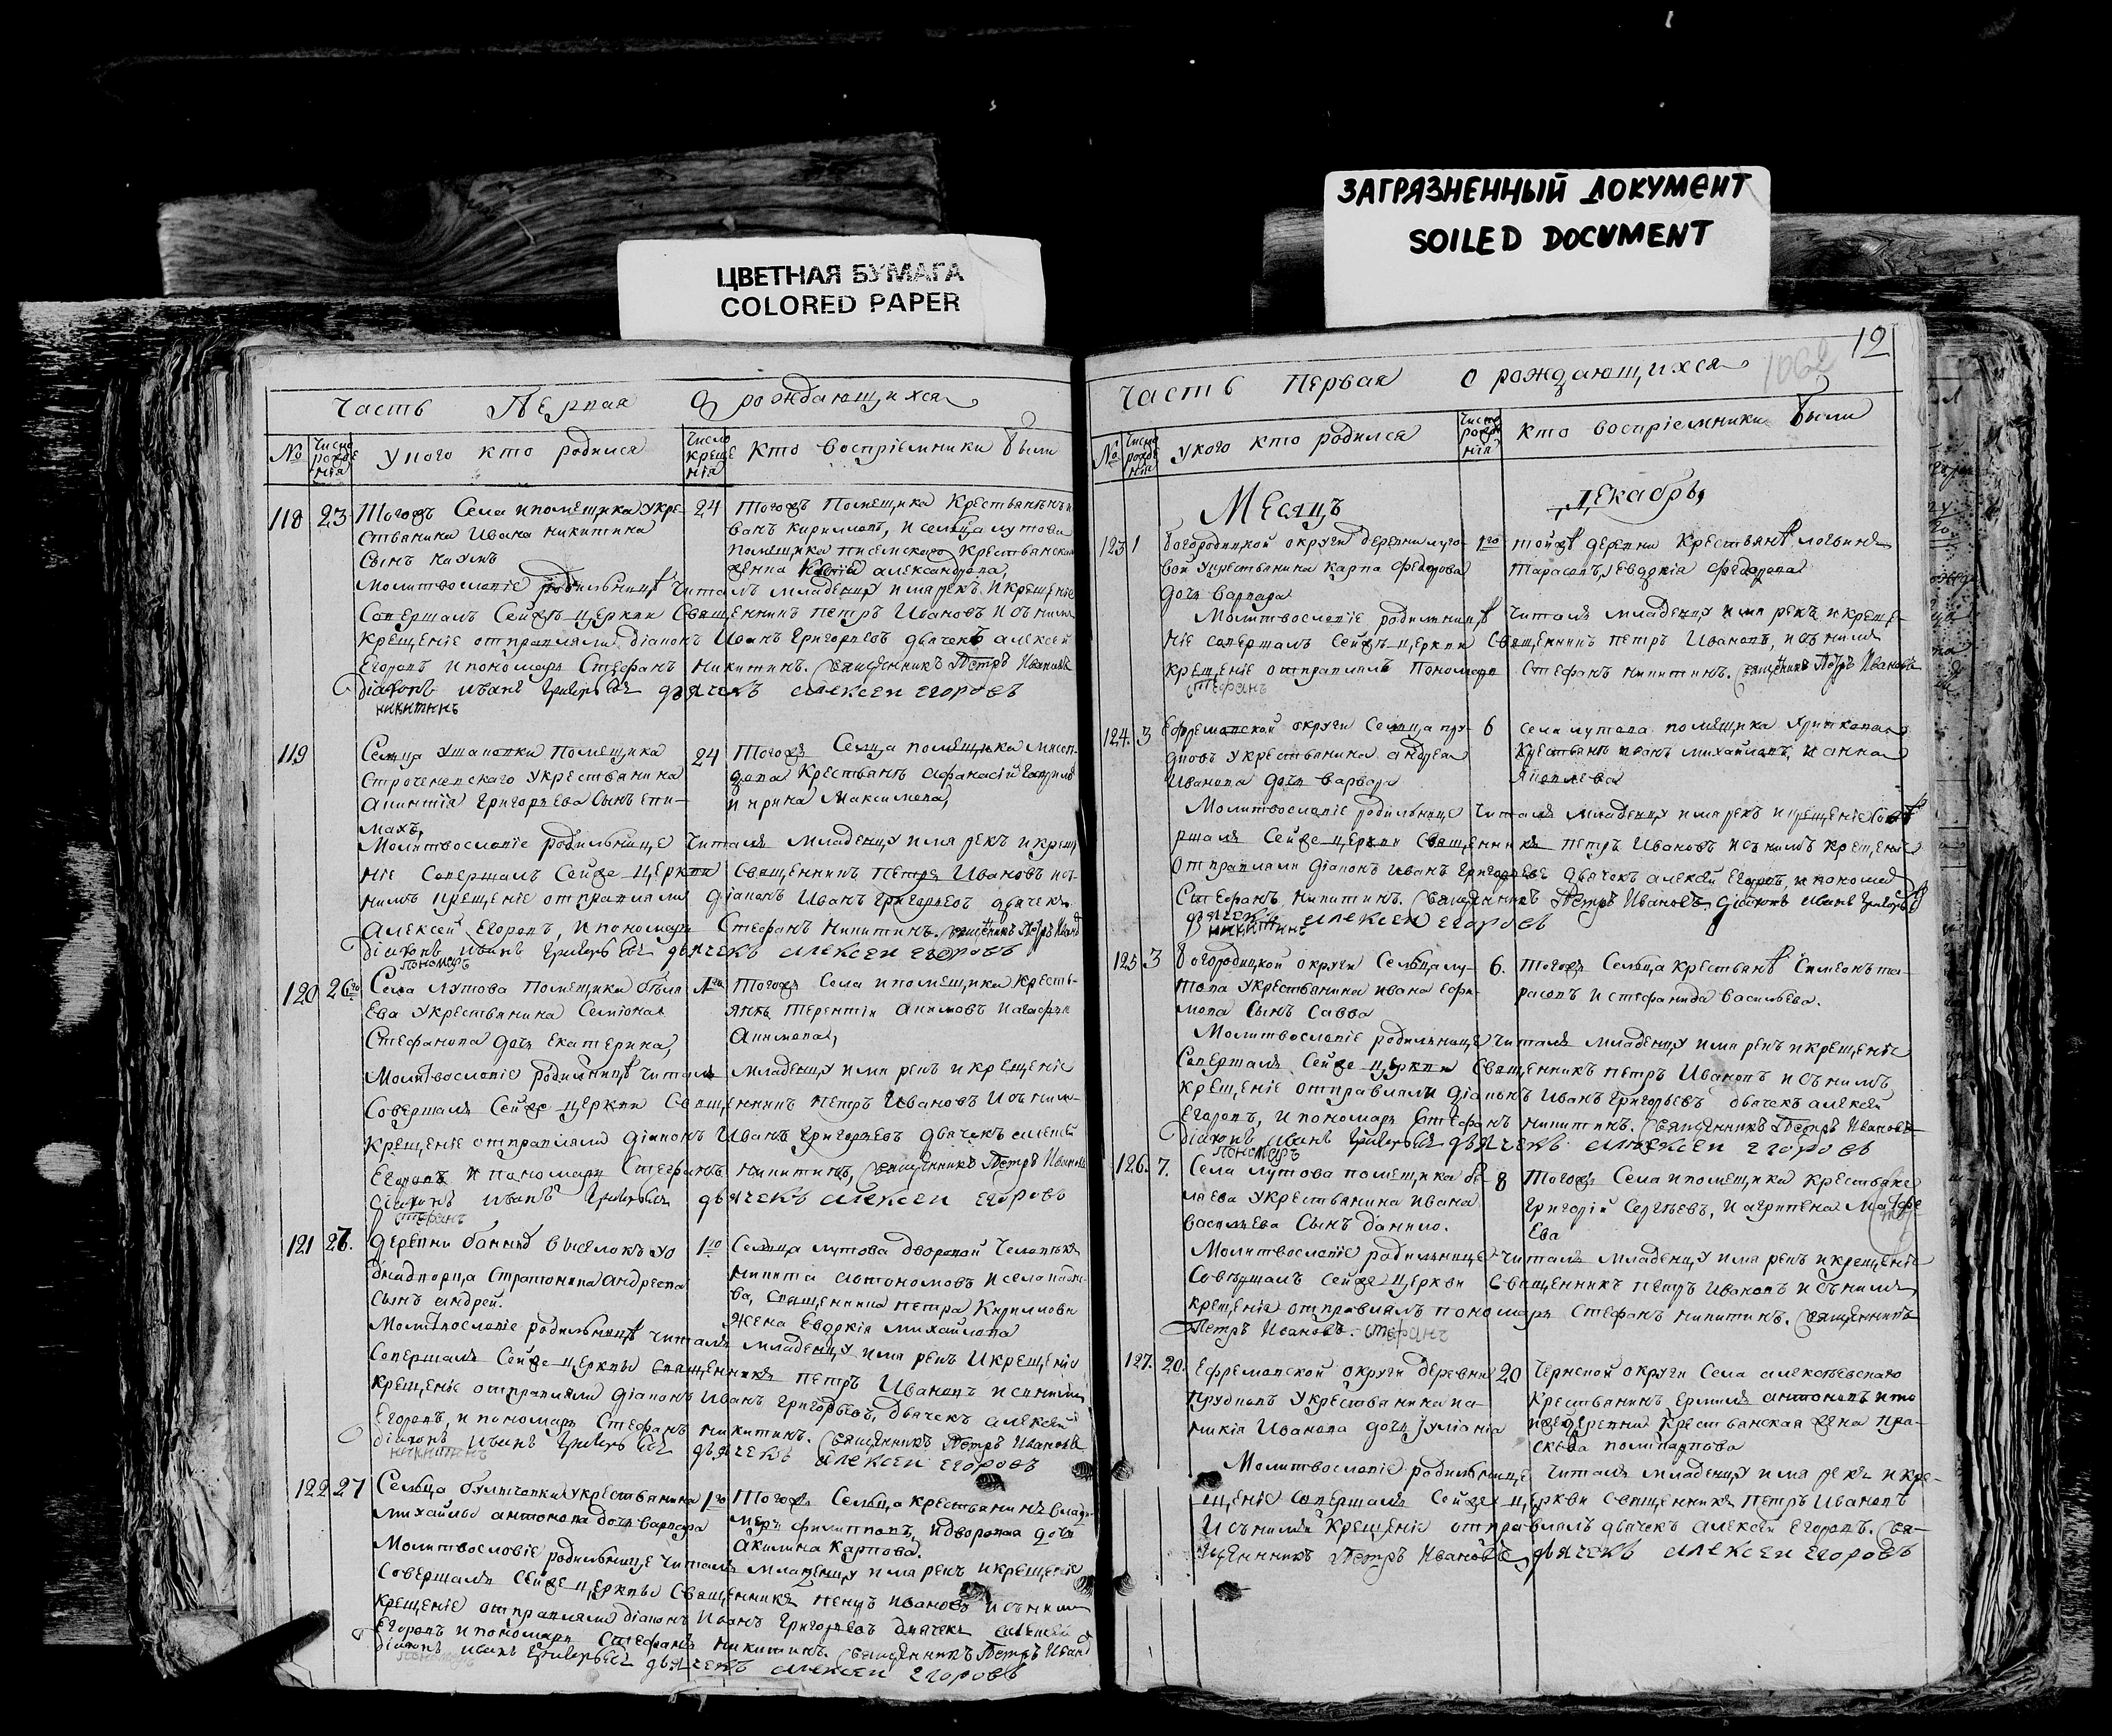 ЦВЕТНАЯ БУМАГА
COLORED PAPER
ЗАГРЯЗНЕННЫЙ ДОКУМЕНТ
SOILED DOCUMENT
Часть Первая О рождающихся
№ Число рожденія У кого кто родился Число крещенія Кто восприемники были
118 23 Тогожъ Села и помещика у кре- 24 Тогожъ Помещика Крестьянинъ и
стьянина Ивана Никитина ванъ Кириловъ, и сельца лутова
Сынъ Наумъ помещика писемскаго Крестьянская
жена александрова,
Молитвословіе родильницѣ читалъ младенцу имя рекъ и крещеніе
Совершалъ Сейжъ церкви Священникъ Петръ Ивановъ и съ нимъ
крещеніе отправляли діаконъ Иванъ Григорьевъ дьячекъ алексей
Егоровъ и пономарь Стефанъ Никитинъ. Священникъ Петръ Ивановъ
діаконъ иванъ Григорьевъ дьячекъ алексеи егоровъ
никитинъ
119 Сельца Ушаковки помещика 24 Тогожъ Сельца помещика
Крестьянъ Афанасій
Григорьева Сынъ Епи- и ирина Максимова,
махъ,
Молитвословіе родильнице читалъ младенцу имя рекъ и креще
ніе Совершалъ Сейже церкви Священникъ Петръ Ивановъ и съ
нимъ крещеніе отправляли діаконъ Иванъ Григорьевъ дьячекъ
алексей Егоровъ, и пономарь Стефанъ Никитинъ. Священникъ Петръ Ивановъ
діаконъ иванъ Григорьевъ дьячекъ алексеи егоровъ
пономаръ
120 26го Села Лутова Помещика бѣля 1го Тогожъ Села и помещика Кресть-
ева у крестьянина Семіона янъ Терентіи Акимовъ и агафья
Стефанова дочь екатерина, Акимова,
Молитвословіе родильницѣ читалъ младенцу имя рекъ и крещеніе
Совершалъ Сейже церкви Священникъ Петръ Ивановъ и съ ним
крещеніе отправляли діаконъ Иванъ Григорьевъ дьячекъ алексей
Егоровъ и пономарь Стефанъ Никитинъ, Священникъ Петръ Ивановъ
діаконъ иванъ Григорьевъ дьячекъ алексеи егоровъ
стефанъ
121 26. деревни выселокъ у о 1го Сельца лутова дворовой человекъ
днадворца Стратоника андреева Никита автономовъ и села
Сынъ андрей. ва, Священника петра Кирилова
жена Евдокія михайлова
Молитвословіе родильницѣ читалъ младенцу имя рекъ и крещеніе
Совершалъ Сейже церквы священникъ петръ Ивановъ и с нимъ
крещеніе отправляли діаконъ Иванъ Григорьевъ, дьячекъ алексей
Егоровъ, и пономарь Стефанъ никитинъ. Священникъ Петръ Ивановъ
діаконъ иванъ Григорьевъ дьячекъ алексеи егоровъ
никитинъ
122 27 Сельца булычовки у крестьянина 1го Тогожъ Сельца крестьянинъ влади-
михайлы антонова дочь варвара меръ филипповъ, и дворовая дочь
акилина карпова.
Молитвословіе родильнице читалъ младенцу имя рекъ и крещеніе
Совершалъ Сейже церквы Священникъ петръ Ивановъ и съ ним
крещеніе отправляли діаконъ Иванъ Григорьевъ дьячекъ алексей
Егоровъ и пономарь Стефанъ никитинъ. Священникъ Петръ Ивановъ
діаконъ иванъ Григорьевъ дьячекъ алексеи егоровъ
пономаръ
12
1062
Часть Первая о рождающихся
№ Число рожденія У кого кто родился Число рожденія Кто восприемники были
Месяцъ Декабрь
123 1 Богородицкой округи деревни луго- 1го тойжѣ деревни Крестьянѣ логвинъ
вой у крестьянина Карпа Федорова Тарасовъ, Евдокія Федорова
дочь варвара
Молитвословіе родильницѣ читалъ младенцу имя рекъ и креще-
ніе совершалъ Сейжъ церкви Священникъ петръ Ивановъ, и съ нимъ
крещеніе отправлялъ Пономарь Стефанъ никитинъ. Священникъ Петръ Ивановъ
стефанъ
124. 3 Ефремовской округи Сельца пру- 6 села лутова помещика
довъ у крестьянина андрея Крестьянъ иванъ михайловъ, и анна
Иванова дочь варвара яковлева
Молитвословіе родильнице читалъ младенцу имя рекъ и крещеніе Сове
ршалъ Сейже церкви Священникъ петръ Ивановъ и съ нимъ крещеніе
отправляли діаконъ иванъ Григорьевъ дьячекъ алексей Егоровъ, и пономарь
Стефанъ никитинъ. Священникъ Петръ Ивановъ діаконъ иванъ Григорьевъ
дьячекъ алексеи егоровъ
никитинъ
125 3 Богородицкой округи Сельца лу- 6. Тогожъ Сельца Крестьянѣ Симеонъ та-
това у крестьянина ивана ефи- расовъ и стефанида васильева.
мова Сынъ Савва
Молитвословіе родильнице читалъ младенцу имя рекъ и крещеніе
Совершалъ Сейже церкви Священникъ петръ Ивановъ и съ нимъ
крещеніе отправляли діаконъ Иванъ Григорьевъ дьячекъ алексей
Егоровъ, и пономарь Стефанъ никитинъ. Священникъ Петръ Ивановъ
діаконъ иванъ Григорьевъ дьячекъ алексеи егоровъ
пономаръ
126. 7. Села Лутова помещика бе- 8 Тогожъ Села и помещика Крестьяне
ляева у крестьянина Ивана Григорій Сергѣевъ, и агрипена Матфе
васильева Сынъ данило. ева
Молитвословіе родильнице читалъ младенцу имя рекъ и крещеніе
Совершалъ Сейже церкви Священникъ петръ Ивановъ и съ нимъ
крещеніе отправлялъ пономарь Стефанъ никитинъ. Священникъ
Петръ Ивановъ. стефанъ
127. 20. Ефремовской округи деревни 20 Чернской округи Села алексѣевскаго
прудковъ у крестьянина на- Крестьянинъ Ермилъ антоновъ и то
икія Иванова дочь Іуліанія иже деревни Крестьянская жена пра-
скева поликарпова
Молитвословіе родильнице читалъ младенцу имя рекъ и кре-
щеніе совершалъ Сейже церкви священникъ петръ Ивановъ
И съ нимъ крещеніе отправлялъ дьячекъ алексей Егоровъ. Свя-
щенникъ Петръ Ивановъ, дьячекъ алексеи егоровъ